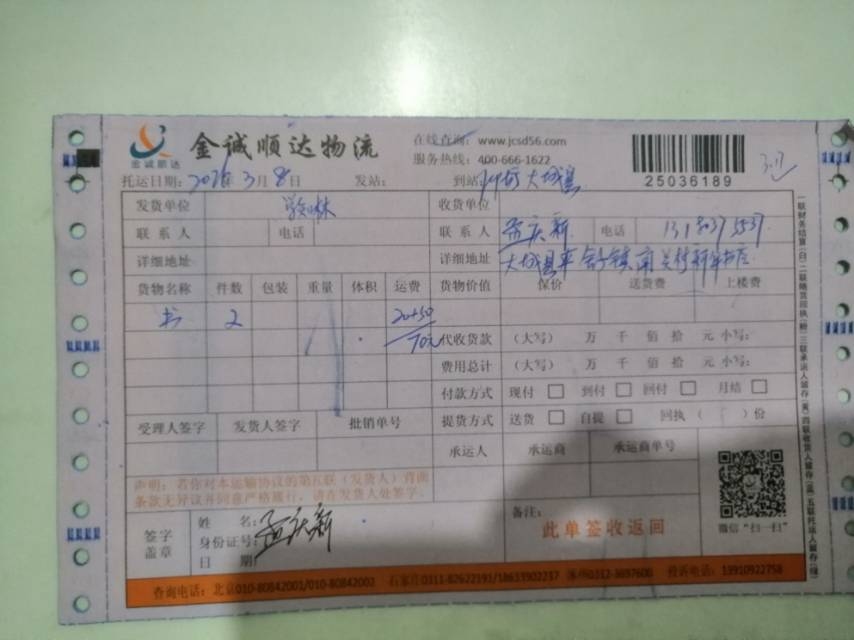 金诚顺达
金诚顺达物流
在线查询：www.jcsd56.com
服务热线：400-666-1622
25036189
托运日期： 3月8日 发站： 到站： 大城县
发货单位 收货单位
联系人 电话 联系人 孟庆新 电话
详细地址 详细地址 大城县平舒镇南关村
货物名称 件数 包装 重量 体积 运费 货物价值 保价 送货费 上楼费
书 2 20+50
70元 代收货款 （大写） 万 千 佰 拾 元 小写：
费用总计 （大写） 万 千 佰 拾 元 小写：
付款方式 现付 到付 回付 月结
受理人签字 发货人签字 批销单号 提货方式 送货 自提 回执（ ）份
承运人 承运商 承运商单号
声明：若你对本运输协议的第五联（发货人）背面
条款无异议并同意严格履行，请在发货人处签字。
签字
盖章
姓名： 孟庆新
身份证号：
日期：
备注：
此单签收返回
微信“扫一扫”
查询电话：北京010-80842001/010-80842002 石家庄0311-82622193/18633902237 涿州0312-3697600 投诉电话：13910922758